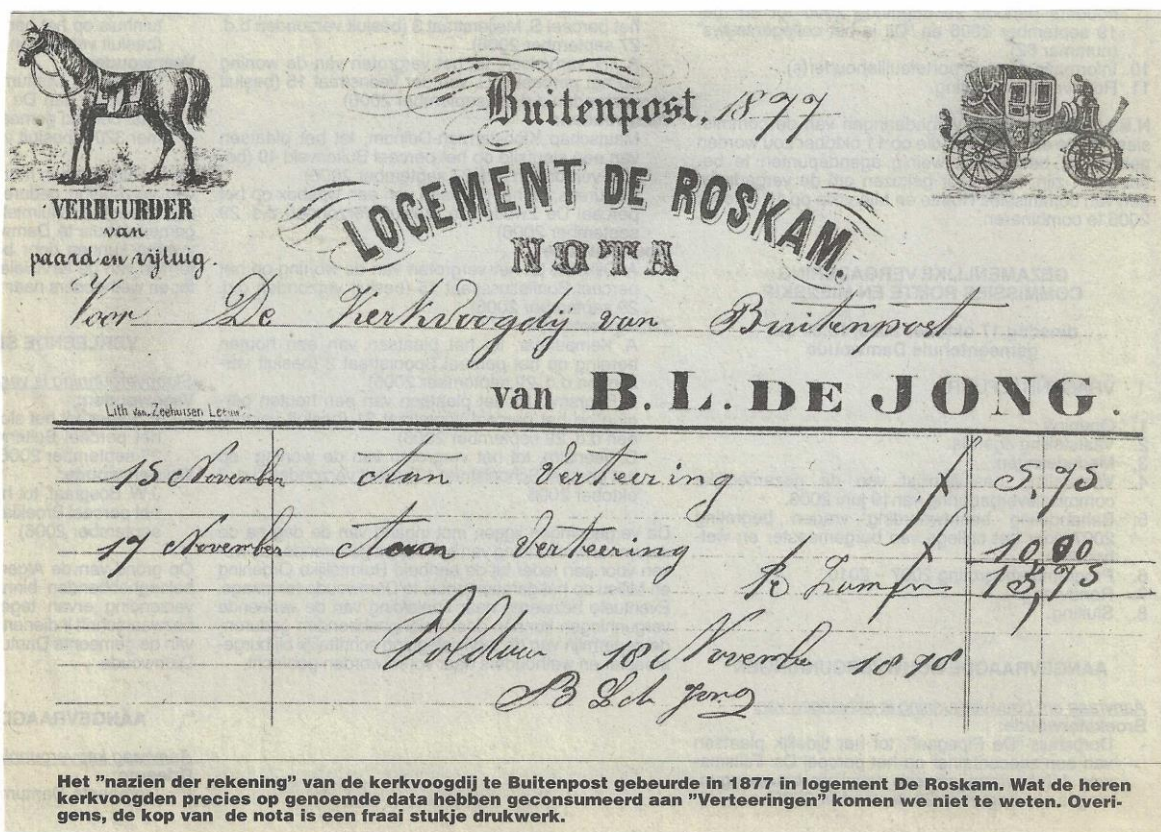 Buitenpost, 1877
LOGEMENT DE ROSKAM.
NOTA
VERHUURDER
van
paard en rijtuig.
Voor De Kerkvoogdij van Buitenpost
van B. L. DE JONG.
Lith. van Zeehuisen Leeuw.
15 November Aan Verteering f 5,75
17 November Aan Verteering f 10,00
Zamen f 15,75
Voldaan 18 November 1878
B L de Jong
Het "nazien der rekening" van de kerkvoogdij te Buitenpost gebeurde in 1877 in logement De Roskam. Wat de heren
kerkvoogden precies op genoemde data hebben geconsumeerd aan "Verteeringen" komen we niet te weten. Overi-
gens, de kop van de nota is een fraai stukje drukwerk.